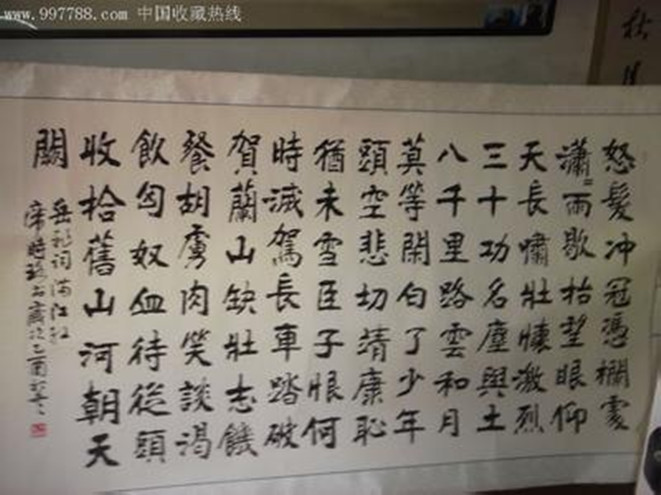 www.997788.com 中国收藏热线
怒髮冲冠憑欄處
瀟〻雨歇抬望眼仰
天長嘯壯懷激烈
三十功名塵與土
八千里路雲和月
莫等閑白了少年
頭空悲切靖康恥
猶未雪臣子恨何
時滅駕長車踏破
賀蘭山缺壯志饑
餐胡虜肉笑談渴
飲匈奴血待從頭
收拾舊山河朝天
闕
岳飛詞滿江紅
乙酉
秋